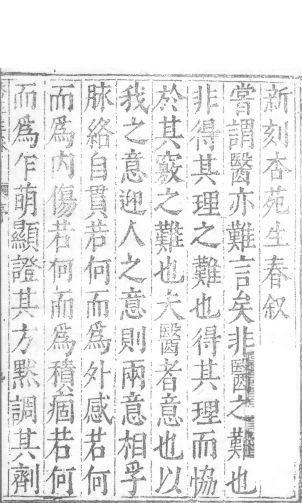 新刻杏苑生春叙
嘗謂醫亦難言矣非醫之難也
非得其理之難也得其理而恊
於其竅之難也夫醫者意也以
我之意迎人之意則兩意相孚
脉絡自貫若何而為外感若何
而為内傷若何而為積痼若何
而為乍萌顯證其方黙調其劑